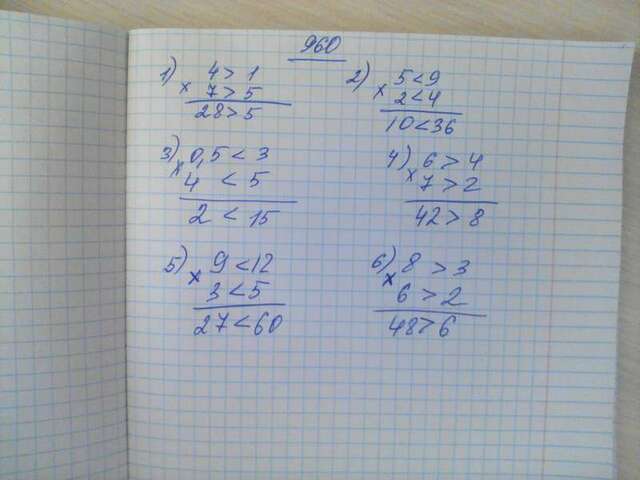 960
1) 4 > 1
× 7 > 5
28 > 5
2) 5 < 9
× 2 < 4
10 < 36
3) 0,5 < 3
× 4 < 5
2 < 15
4) 6 > 4
× 7 > 2
42 > 8
5) 9 < 12
× 3 < 5
27 < 60
6) 8 > 3
× 6 > 2
48 > 6